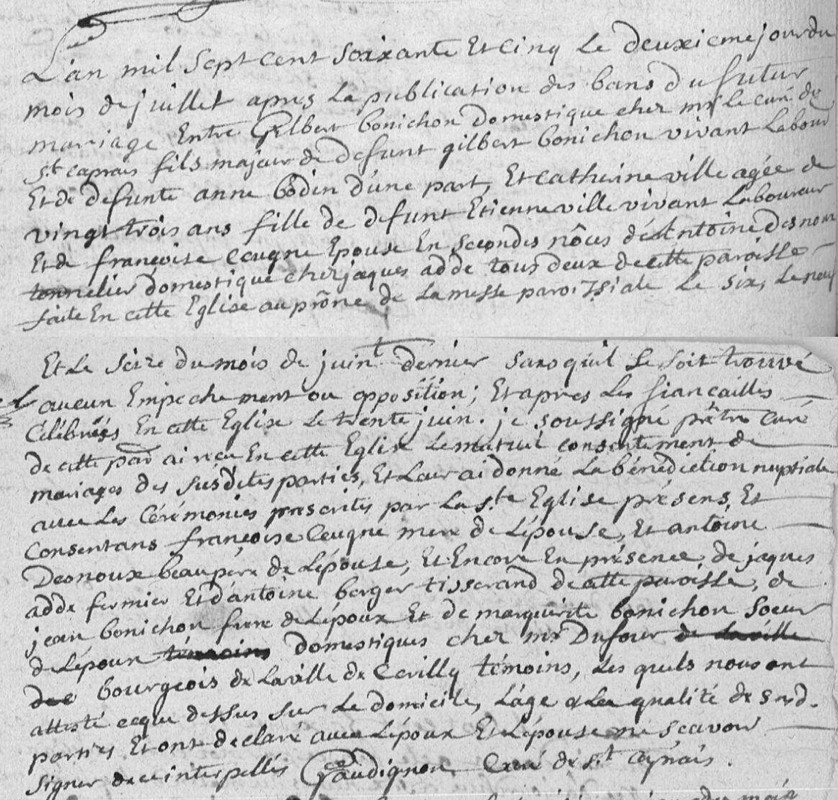 L'an mil sept cent soixante Et cinq Le deuxieme jour du
mois de juillet apres La publication des bans du futur
mariage Entre Gilbert bonichon domestique chez mr Le curé de
St caprais fils majeur de defunt gilbert bonichon vivant Labour
Et de defunte anne bodin d'une part, Et catherine ville agée de
vingt trois ans fille de defunt Etienne ville vivant Laboureur
Et de françoise Ceugne Epouse En secondes nôces d'Antoine desnoux
tonnelier domestique chez jaques adde tous deux de cette paroisse
faite En cette Eglise au prône de La messe paroissiale Le six, Le neuf
Et Le seize du mois de juin dernier sans quil se soit trouvé
aucun Empechement ou opposition; Et apres Les fiancailles
Célébrées En cette Eglise Le trente juin. je soussigné prêtre curé
de cette par. ai recu En cette Eglise Le mutuel consentement de
mariages des susdites parties, Et Leur ai donné La bénédiction nuptiale
avec Les Cérémonies prescrites par La Ste Eglise présens, Et
Consentans françoise Ceugne mere de Lépouse, Et antoine
Desnoux beaupére de Lépouse, Et Encore En présence, de jaques
adde fermier Et d'antoine berger tisserand de cette paroisse, de
jean bonichon frere de Lépoux Et de marguerite bonichon soeur
de Lépoux temoins domestiques chez mr Dufour de La ville
des bourgeois de La ville de Cerilly témoins, Les quels nous ont
attesté ce que dessus sur Le domicile, L'age & La qualité de susd.
parties Et ont declaré avec Lépoux Et Lépouse ne scavoir
signer de ce interpellés Gaudignon Curé de St